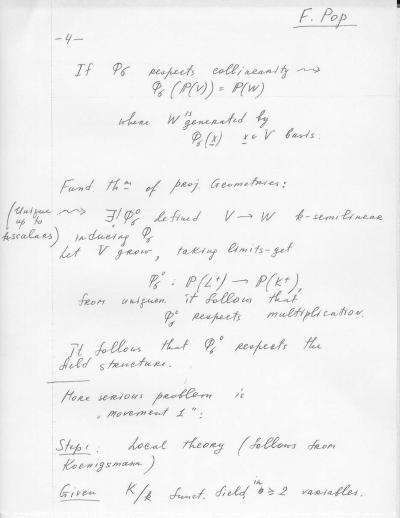 F. Pop
-4-
If Φ_σ respects collinearity ⇝
Φ_σ (P(V)) = P(W)
where W is generated by
Φ_σ(x) x ∈ V basis.
Fund. thm of proj. Geometries:
(Unique up to k-scalars) ⇝ ∃! Φ_σ° defined V → W k-semilinear
inducing Φ_σ
Let V grow, taking limits-get
Φ_σ° : P(L⁺) → P(K⁺),
from uniquen. it follows that
Φ_σ° respects multiplication.
It follows that Φ_σ° respects the
field structure.
More serious problem is
„movement 1":
Step 1: Local theory (follows from
Koenigsmann)
Given K/k funct. field in ≥ 2 variables.